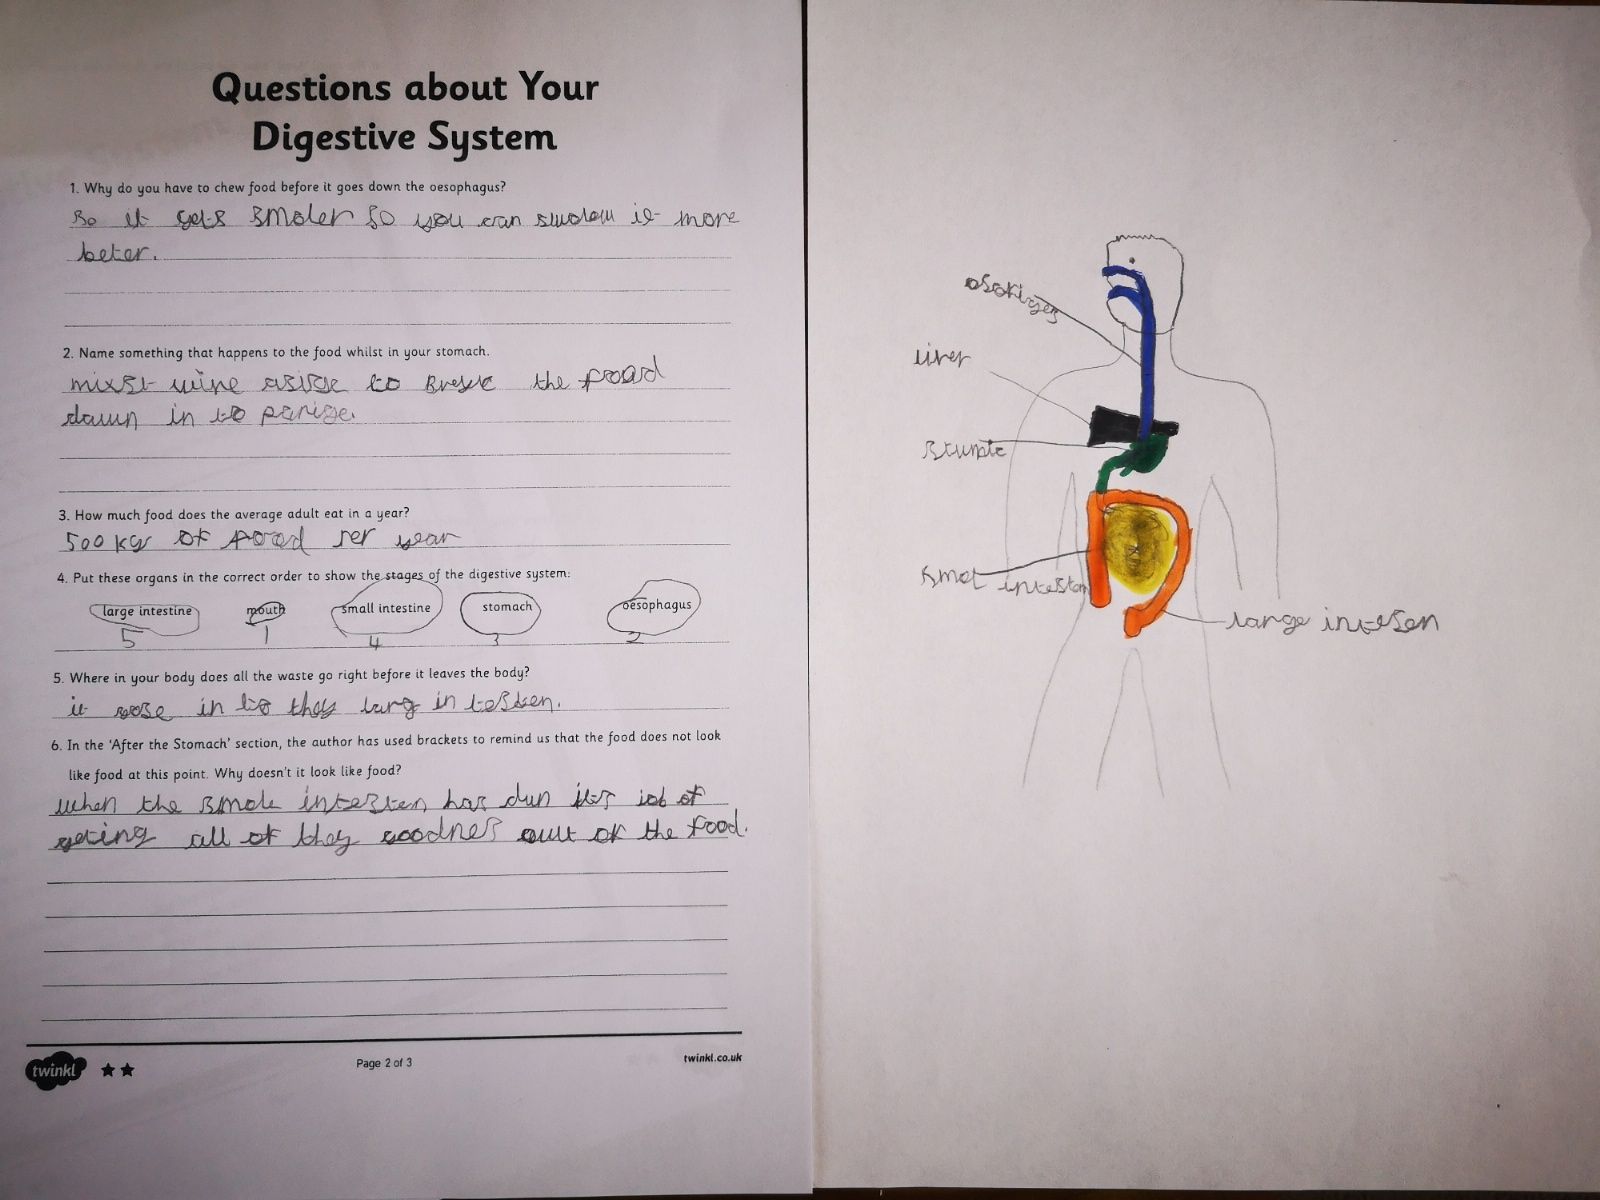 Questions about Your
Digestive System
1. Why do you have to chew food before it goes down the oesophagus?
So it gets smoler so you can swolow it more
beter.
2. Name something that happens to the food whilst in your stomach.
mixst to the
down in to
3. How much food does the average adult eat in a year?
500 kg of year
4. Put these organs in the correct order to show the stages of the digestive system:
large intestine mouth small intestine stomach oesophagus
5 1 4 3 2
5. Where in your body does all the waste go right before it leaves the body?
it in to they larg in testen.
6. In the 'After the Stomach' section, the author has used brackets to remind us that the food does not look
like food at this point. Why doesn't it look like food?
when the intesten has dun its job of
geting all of they goodnes out of the food.
twinkl
Page 2 of 3
twinkl.co.uk
liver
large intesen